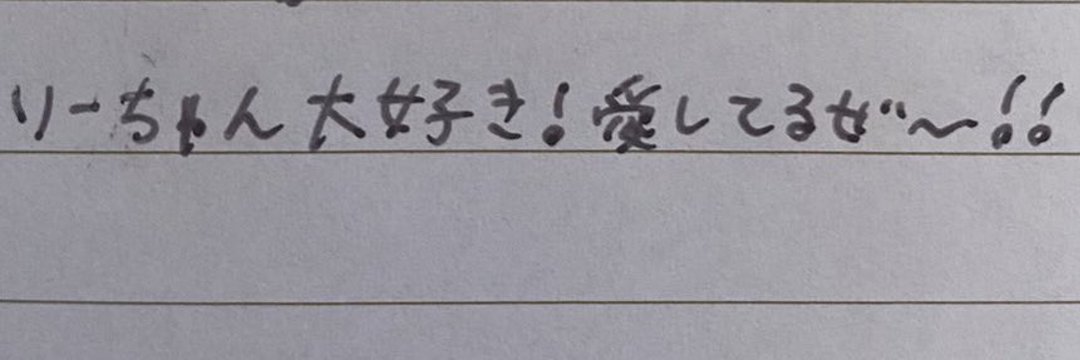 りーちゃん大好き！愛してるぜ〜！！